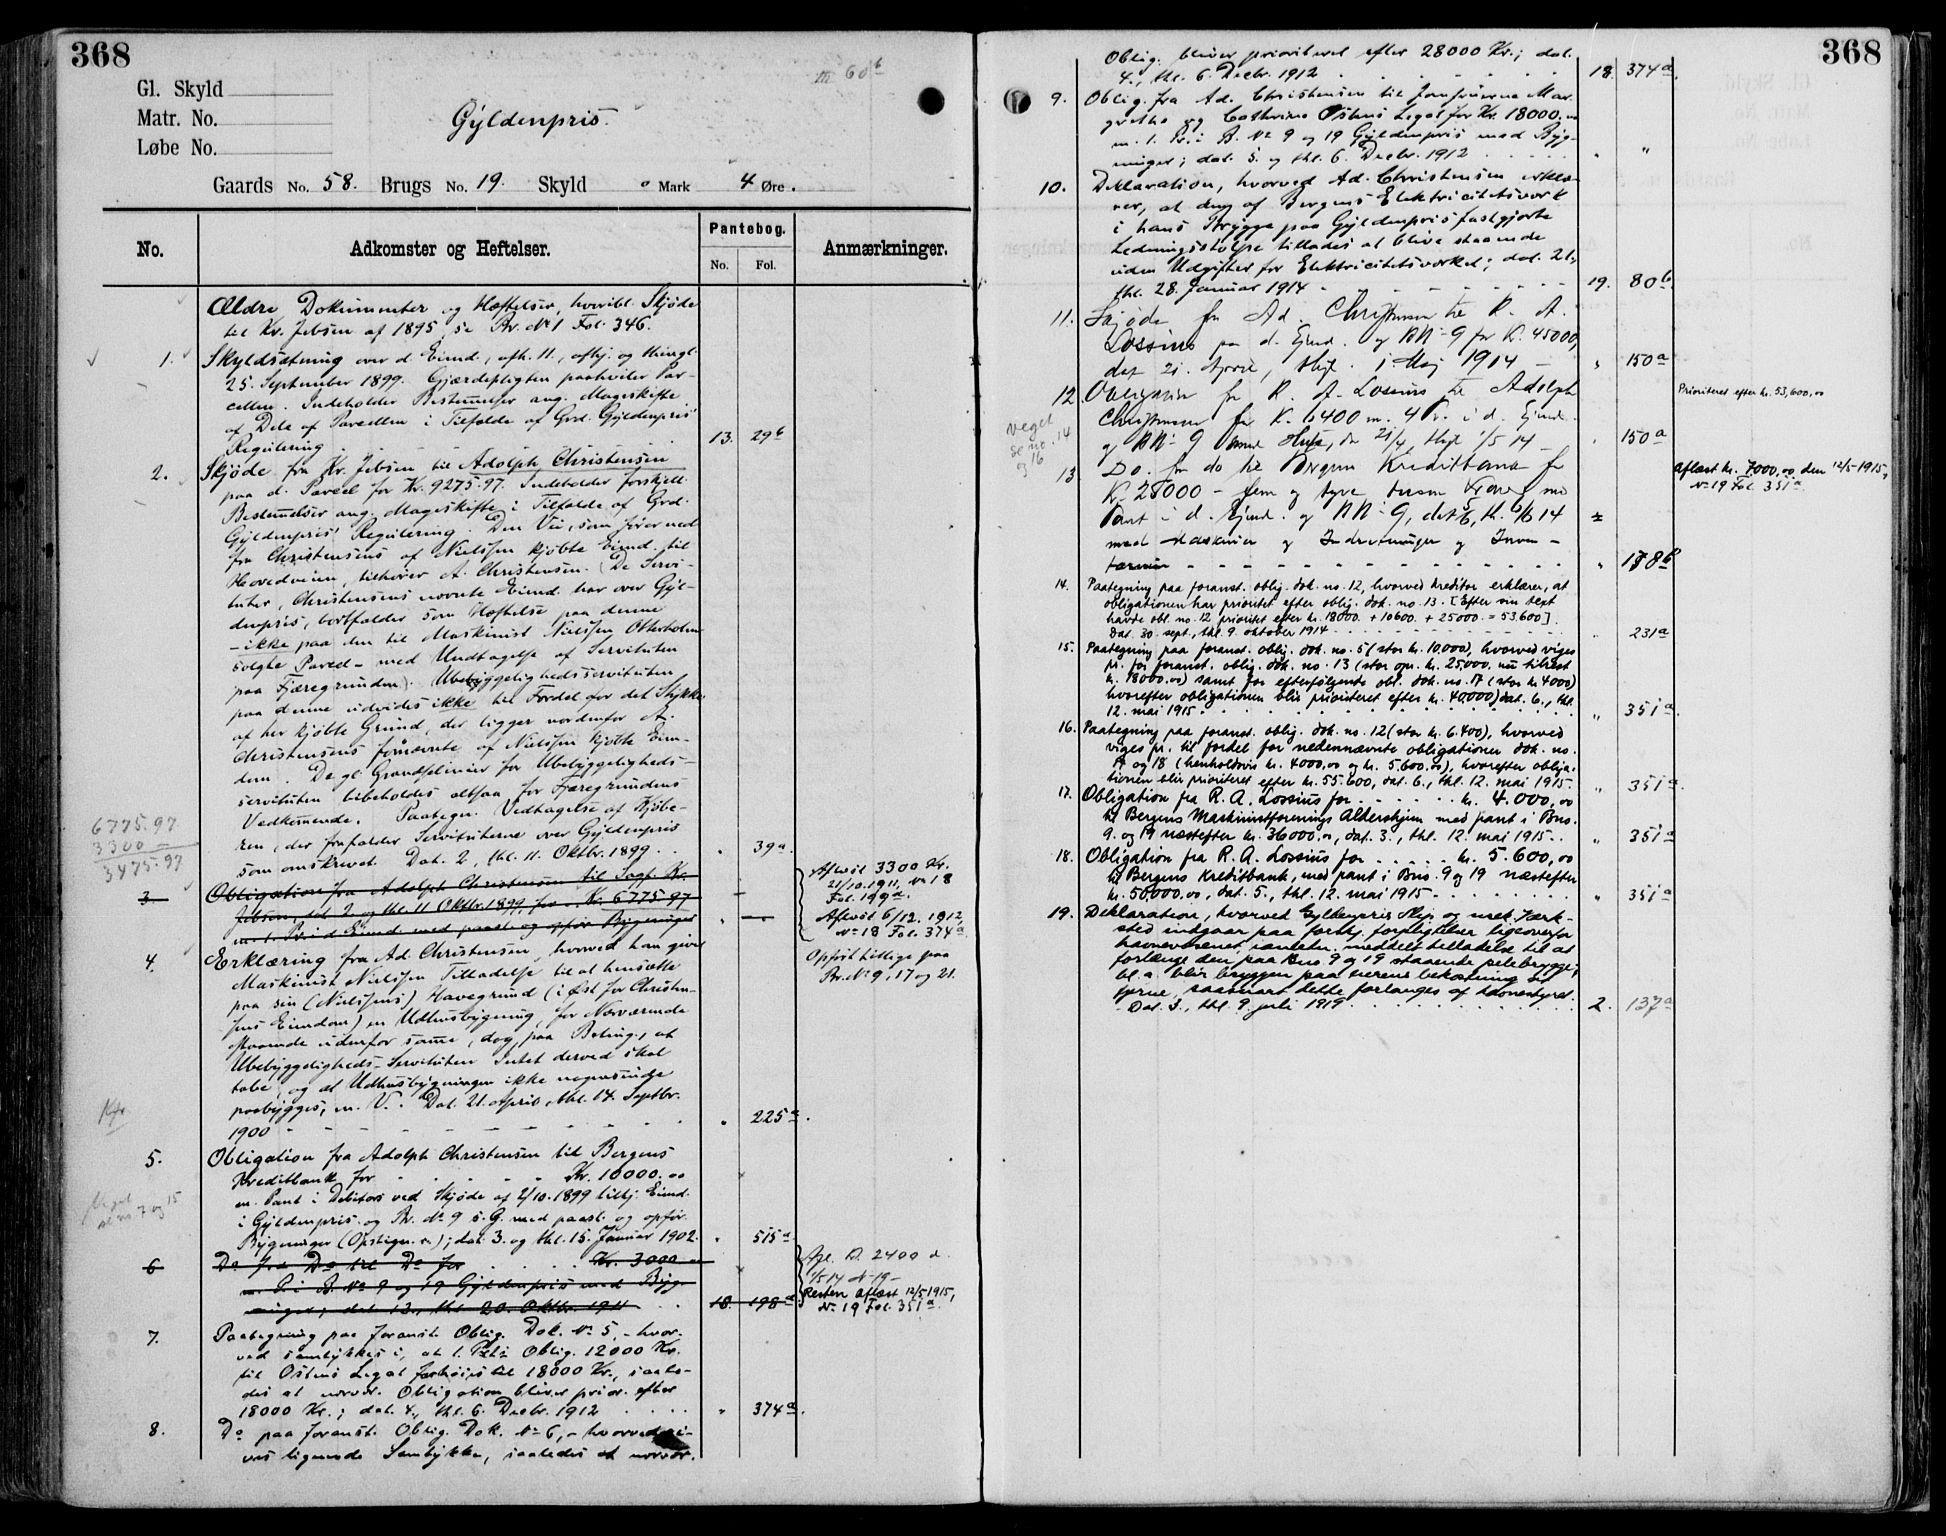 368
Gl. Skyld
Matr. No.
Løbe No.
Gyldenpris.
60 b
Gaards No. 58. Brugs No. 19. Skyld " Mark 4 Øre.
No. Adkomster og Heftelser. Pantebog. No. Fol. Anmærkninger.
Ældre Dokumenter og Heftelser, hvoribl. Skjøde
til Kr. Jebsen af 1895, se Br. No 1 Fol. 346.
1. Skyldsætning over d. Eiend., afh. 11., afhj. og thingl.
25. September 1899. Gjærdepligten paahviler Par-
cellen. Indeholder Bestemmelser ang. Mageskifte
af Dele af Parcellen i Tilfælde af Grd. Gyldenpris'
Regulering . . . 13. 29 b
2. Skjøde fra Kr. Jebsen til Adolph Christensen
paa d. Parcel for Kr. 9275.97. Indeholder forskjell.
Bestemmelser ang. Mageskifte i Tilfælde af Grd.
Gyldenpris' Regulering. Den Vei, som fører ned
fra Christensens af Nielssen kjøbte Eiend. til
Hovedveien, tilhører A. Christensen. (De Servi-
tuter, Christensens nævnte Eiend. har over Gyl-
denpris, bortfalder som Heftelse paa denne
- ikke paa den til Maskinist Nielssen Otterholm
solgte Parcel - med Undtagelse af Servituten
paa Fjæregrunden). Ubebyggelighedsservituten
paa denne udvides ikke til Fordel for det Stykke
af her kjøbte Grund, der ligger nordenfor A.
Christensens fornævnte af Nielssen kjøbte Eien-
dom. De gl. Grændselinier for Ubebyggeligheds-
servituten bibeholdes altsaa for Fjæregrundens
Vedkommende. Paategn. Vedtagelse af Kjøbe-
ren, der frafalder Servituterne over Gyldenpris
som omskrevet. Dat. 2., thl. 11. Oktbr. 1899 . . " 39 a
6775.97
3300 -
3475.97
3. Obligation fra Adolph Christensen til Sagf. Kr.
Jebsen, dat. 2. og thl. 11 Oktbr. 1899, for Kr. 6775.97
m. 1. Pr. i d. Eiend. med paast. og opfør. Bygninger
Afløst 3300 Kr.
21/10.1911, No 18
Fol. 199 d.
Aflöst 6/12. 1912,
No 18 Fol. 374 a.
4. Erklæring fra Ad. Christensen, hvorved han giver
Maskinist Nielssen Tilladelse til at hensætte
paa sin (Nielssens) Havegrund (i Øst for Christen-
sens Eiendom) en Udhusbygning, for Nærværende
staaende udenfor samme, dog paa Beting., at
Ubebyggeligheds-Servituten Intet derved skal
tabe, og at Udhusbygningen ikke nogensinde
paabygges, m. V. Dat. 21. April, thl. 14. Septbr.
1900 - - - - " 225 a.
Opført tillige paa
Br. No 9, 17 og 21.
14.
5. Obligation fra Adolph Christensen til Bergens
Kreditbank for . . . . Kr. 10000.00
m. Pant i Debitors ved Skjøde af 2/10.1899 tilhj. Eiend.
i Gyldenpris og Br. No 9 s. G. med paast. og opfør.
Bygninger (Opsign. v.); dat. 3. og thl. 15. Januar 1902. " 515 a
se no. 7 og 15
6 Do fra Do til Do for . . . Kr. 3000
m. P. i B. No 9 og 19 Gyldenpris med Byg-
ninger; dat. 13., thl. 20. Oktbr. 1911 . . 18. 198 a.
2400
1/5 14 N 19 -
Resten aflæst 12/5 1915,
No. 19 Fol. 351 a.
7. Paategning paa foranst. Oblig. Dok. No 5, - hvor-
ved samtykkes i, at 1. Pr. Oblig. 12000 Kr.
til Ostens Legat forhøies til 18000 Kr., saale-
des at nærvær. Obligation bliver prior. efter
18000 Kr.; dat. 4., thl. 6. Decbr. 1912 . . . " 374 a.
8. Do paa foranst. Oblig. Dok. No 6, - hvorved gi-
ves lignende Samtykke, saaledes at nærvær.
368
Oblig. bliver prioriteret efter 28000 Kr.; dat.
4., thl. 6. Decbr. 1912 . . . 18. 374 a.
9. Oblig. fra Ad. Christensen til Jomfruerne Mar-
grethe og Cathrine Ostens Legat for Kr. 18000.00
m. 1. Pr. i B. No 9 og 19 Gyldenpris med Byg-
ninger; dat. 5. og thl. 6. Decbr. 1912 . . . " "
10. Deklaration, hvorved Ad. Christensen erklæ-
rer, at den af Bergens Elektricitetsverk
i hans Brygge paa Gyldenpris fastgjorte
Ledningsstolpe tillades at blive staaende
uden Udgifter for Elektricitetsverket; dat. 21.,
thl. 28. Januar 1914 - - - 19. 80 b.
11. Skjøde fra Ad. Christensen til R. A.
Lossius paa d. Ejend. og BN 9 for Kr. 45000,
dat 21. April, thgl. 1. Maj 1914 - " 150 a
12 Obligasion fra R. A. Lossius til Adolph
Christensen for Kr. 6400 m. 4 Pr. i d. Ejend.
og BN 9 samt Huse, dat 21/4, thgl 1/5 14 - " 150 a
Prioriteret efter kr. 53,600,00
veget
se no. 14
og 16
13 Do. fra do til Bergens Kreditbank for
Kr. 25000 - fem og tyve tusen Kroner med
Pant i d. Ejend. og BN 9, dat 5/6, th. 9/6 14
med Maskiner og Indretninger og Inven-
tarium - - - - " 188 b
aflæst kr. 7000,00 den 12/5 1915,
No 19 Fol. 351 a.
14. Paategning paa foranst. oblig. dok. no. 12, hvorved kreditor erklærer, at
obligationen har prioritet efter oblig. dok. no. 13. [Efter sin text
havde obl. no. 12 prioritet efter kr. 18000. + 10600. + 25000. = 53.600].
Dat. 30. sept., thl. 9. oktober 1914 - - - " 231 a
15. Paategning paa foranst. oblig. dok. no. 5 (stor kr. 10.000), hvorved viges
pr. for foranst. oblig. dok. no. 13 (stor opr. kr. 25,000. nu tilrest
kr. 18000.00) samt for efterfølgende obl. dok. no. 17 (stor kr. 4000)
hvorefter obligationen blir prioriteret efter kr. 40,000) dat. 6., thl.
12. mai 1915 . . . " 351 a.
16. Paategning paa foranst. oblig. dok. no. 12 (stor kr. 6.400), hvorved
viges pr. til fordel for nedennævnte obligationer dok. no.
17 og 18 (henholdsvis kr. 4000,00 og kr. 5.600.00), hvorefter obliga-
tionen blir prioriteret efter kr. 55.600, dat. 6., thl. 12. mai 1915. " 351 a.
17. Obligation fra R. A. Lossius for . . . . kr. 4.000,00
til Bergens Maskinistforenings Alderhjem med pant i Bno.
9. og 19 næstefter kr. 36000.00, dat. 3., thl. 12. mai 1915 . . " 351 a
18. Obligation fra R. A. Lossius for . . . . kr. 5.600,00
til Bergens Kreditbank, med pant i Bno. 9 og 19 næstefter
kr. 50,000.00, dat. 5., thl. 12. mai 1915 - - - " 351 a
19. Deklaration, hvorved Gyldenpris Slip og mek. Værk-
sted indgaar paa forskj. forpligtelser ligeoverfor
havnevæsenet i anledn. meddelt tilladelse til at
forlænge den paa Bno. 9 og 19 staaende pelebrygge;
bl. a. blir bryggen paa eierens bekostning at
fjerne, saasnart dette forlanges af havnestyret.
Dat. 3., thl. 9. juli 1919 . . . 2. 137 a